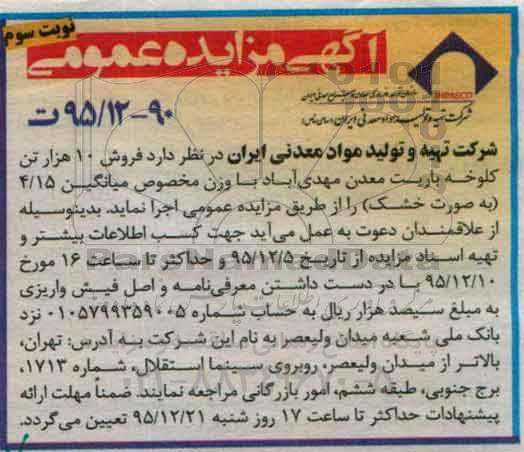 نوبت سوم
آگهی مزایده عمومی
IMPASCO
شرکت تهیه و تولید مواد معدنی ایران (سهامی خاص)
۹۵/۱۲-۹۰ ت
شرکت تهیه و تولید مواد معدنی ایران در نظر دارد فروش ۱۰ هزار تن
کلوخه باریت معدن مهدی‌آباد با وزن مخصوص میانگین ۴/۱۵
(به صورت خشک) را از طریق مزایده عمومی اجرا نماید. بدینوسیله
از علاقمندان دعوت به عمل می‌آید جهت کسب اطلاعات بیشتر و
تهیه اسناد مزایده از تاریخ ۹۵/۱۲/۵ و حداکثر تا ساعت ۱۶ مورخ
۹۵/۱۲/۱۰ با در دست داشتن معرفی‌نامه و اصل فیش واریزی
به مبلغ سیصد هزار ریال به حساب شماره ۰۱۰۵۷۹۹۳۵۹۰۰۵ نزد
بانک ملی شعبه میدان ولیعصر به نام این شرکت به آدرس: تهران،
بالاتر از میدان ولیعصر، روبروی سینما استقلال، شماره ۱۷۱۳،
برج جنوبی، طبقه ششم، امور بازرگانی مراجعه نمایند. ضمناً مهلت ارائه
پیشنهادات حداکثر تا ساعت ۱۷ روز شنبه ۹۵/۱۲/۲۱ تعیین می‌گردد.